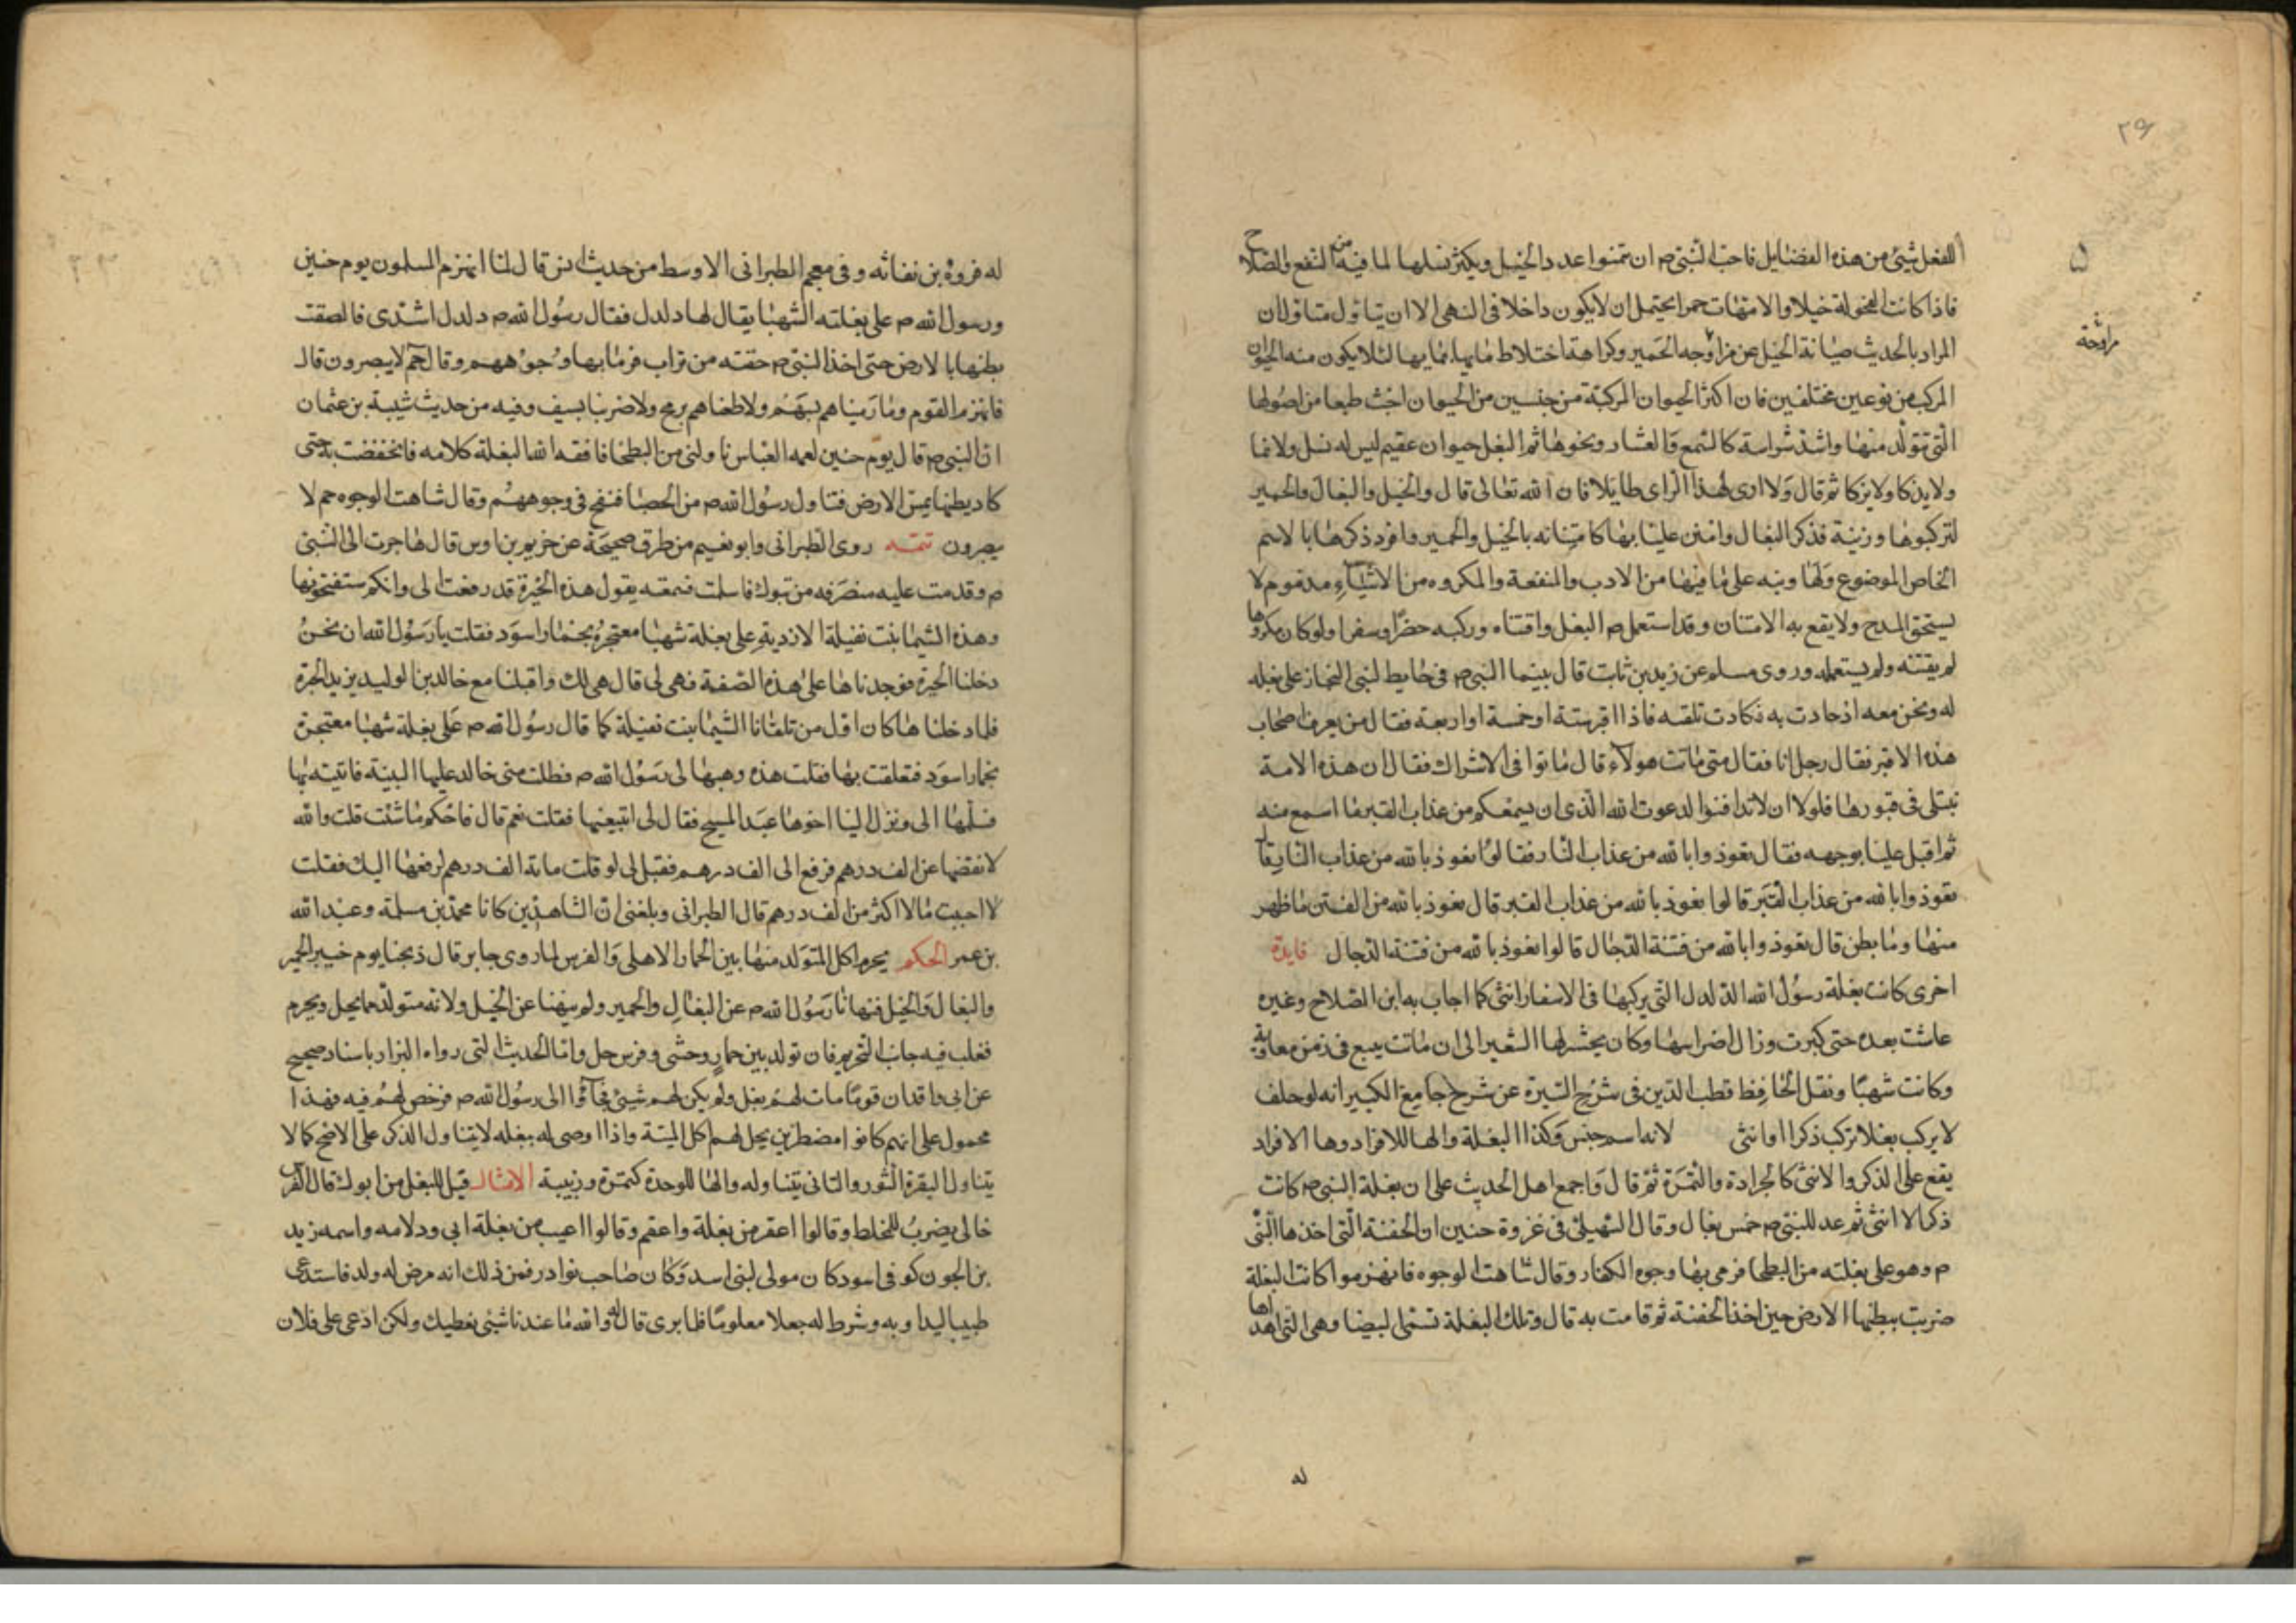 ٢٩
للفعل شيئ من هذه الفضايل فاحب النبي ص ان تمنوا عدد الخيل ويكثر نسلها لما فيه من النفع والصلاح
فاذا كانت الفحولة خيلا والامهات حمرا يحتمل ان لا يكون داخلا في النهي الا ان يتاول متاول ان
المراد بالحديث صيانة الخيل عن مزاوجه الحمير وكراهة اختلاط مايها بمايها لئلا يكون منه الحيوان
مراوجة
المركب من نوعين مختلفين فان اكثر الحيوان المركبة من جنسين من الحيوان اخبث طبعا من اصولها
التي تتولد منها واشد شراسة كالسمع والعشار ونحوها ثم البغل حيوان عقيم ليس له نسل ولا نما
ولا يذكا ولا يزكا ثم قال ولا ارى لهذا الراى طايلا فان الله تعالى قال والخيل والبغال والحمير
لتركبوها وزينة فذكر البغال وامتن علينا بها كامتنانه بالخيل والحمير وافرد ذكرها بالاسم
الخاص الموضوع ولها ونبه على ما فيها من الادب والمنفعة والمكروه من الاشياء مذموم لا
يستحق المدح ولا يقع به الامتنان وقد استعمل ص البغل واقتناه وركبه حضرا وسفرا ولو كان مكروها
لم يقتنه ولم يستعمله وروى مسلم عن زيد بن ثابت قال بينما النبي ص في حايط لبني النجاز على بغله
له ونحن معه اذ حادت به فكادت تلقه فاذا اقبر ستة او خمسة او اربعة فقال من يعرف اصحاب
هذه الاقبر فقال رجل انا فقال متى ماتت هولاء قال ماتوا في الاشراك فقال ان هذه الامة
تبتلى في قبورها فلولا ان لا تدافنوا لدعوت الله الذى ان يسمعكم من عذاب القبر ما اسمع منه
ثم اقبل علينا بوجهه فقال تعوذوا بالله من عذاب النار فقالوا نعوذ بالله من عذاب النار قال
تعوذوا بالله من عذاب القبر قالوا نعوذ بالله من عذاب القبر قال نعوذ بالله من الفتن ما ظهر
منها وما بطن قال تعوذوا بالله من فتنة الدجال قالوا نعوذ بالله من فتنة الدجال فايدة
اخرى كانت بغلة رسول الله الدلدل التي يركبها في الاسفار انثى كما اجاب به ابن الصلاح وغيره
عاشت بعده حتى كبرت وزال اضراسها وكان يحشر لها الشعير الى ان ماتت بيبع في زمن معاوية
وكانت شهبا ونقل الحافظ قطب الدين في شرح السيرة عن شرح جامع الكبير انه لو حلف
لا يركب بغلا تركب ذكرا او انثى لانه اسم جنس وكذا البغلة والها للافراد وها الافراد
يقع على الذكر والانثى كالجرادة والتمرة ثم قال واجمع اهل الحديث على ان بغلة النبي ص كانت
ذكرا لا انثى ثم عد للنبي ص خمس بغال وقال السهيلي في غزوة حنين ان الحفنة التي اخذها النبي
ص وهو على بغلته من البطحا فرمى بها وجوه الكفار وقال شاهت الوجوه فانهزموا كانت البغلة
ضربت ببطنها الارض حين اخذ الحفنة ثم قامت به قال وتلك البغلة تسمى البيضا وهي التي اهداها
له
له فروة بن نفاثه وفي معجم الطبراني الاوسط من حديث انس قال لنا انهزم المسلمون يوم حنين
ورسول الله ص على بغلته الشهبا يقال لها دلدل فقال رسول الله ص دلدل اشتدى فالصقت
بطنها بالارض حتى اخذ النبي ص حفنه من تراب فرما بها وجوههم وقال حم لا يبصرون قال
فانهزم القوم وما رميناهم بسهم ولا طعناهم برمح ولا ضربنا بسيف وفيه من حديث شيبة بن عثمان
ان النبي ص قال يوم حنين لعمه العباس ناولني من البطحا فافقه الله البغلة كلامه فانخفضت به حتى
كاد بطنها يمس الارض فتناول رسول الله ص من الحصبا فنفح في وجوههم وقال شاهت الوجوه حم لا
يبصرون تتمه روى الطبراني وابو نعيم من طرق صحيحة عن خريم بن اوس قال هاجرت الى النبي
ص وقدمت عليه منصرفه من تبوك فاسلمت فسمعته يقول هذه الحيرة قد رفعت الى وانكم ستفتحونها
وهذه الشيما بنت نفيلة الازدية على بغلة شهبا معتجرة بخمار اسود فقلت يا رسول الله ان نحن
دخلنا الحيرة فوجدناها على هذه الصفة فهي لى قال هي لك واقبلنا مع خالد بن الوليد يزيد الحيرة
فلما دخلناها كان اول من تلقانا الشيما بنت نفيلة كما قال رسول الله ص على بغلة شهبا معتجرة
بخمار اسود فتعلقت بها فقلت هذه وهبها لى رسول الله ص فطلب مني خالد عليها البينة فاتيته بها
فسلمها الى ونزل الينا اخوها عبد المسيح فقال لى اتبيعنيها فقلت نعم قال فاحكم ما شئت قلت والله
لا نقضها عن الف درهم فرفع الى الف درهم فقيل لى لو قلت مائة الف درهم لرفعها اليك فقلت
لا احببت مالا اكثر من الف درهم قال الطبراني وبلغني ان الشاهدين كانا محمد بن مسلمة وعبد الله
بن عمر الحكم يحرم اكل المتولد منها بين الحمار الاهلى والفرس لما روى جابر قال ذبحنا يوم خيبر الحمر
والبغال والخيل فنهانا رسول الله ص عن البغال والحمير ولم ينهنا عن الخيل ولانه متولد مما يحل ويحرم
فغلب فيه جانب التحريم فان تولد بين حمار وحشى وفرس حل واما الحديث التي رواه البزار باسناد صحيح
عن ابى واقد ان قوما مات لهم بغل ولم يكن لهم شيئ فجاؤا الى رسول الله ص فرخص لهم فيه فهذا
محمول على انهم كانوا مضطرين يحل لهم اكل الميتة واذا اوصى له ببغله لا يتناول الذكر على الاصح كما لا
يتناول البقرة الثور والثاني يتناوله والها للوحدة كتمرة وزبيبة الامثال قيل للبغل من ابوك قال الفرس
خالى يضرب للمخلط وقالوا اعقر من بغلة واعقم وقالوا اعيب من بغلة ابى ودلامه واسمه زيد
بن الجون كوفى اسود كان مولى لبنى اسد وكان صاحب نوادر فمن ذلك انه مرض له ولد فاستدعى
طبيبا ليداويه وشرط له جعلا معلوما فلما برى قال له والله ما عندنا شيئ نعطيك ولكن ادعى على فلان